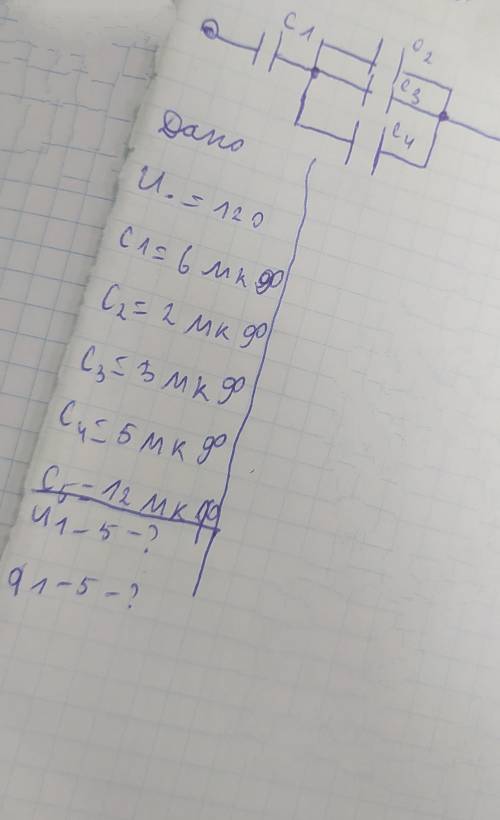 C1
C2
C3
C4
Дано
U. = 120
C1 = 6 мкф
C2 = 2 мкф
C3 = 3 мкф
C4 = 5 мкф
C5 - 12 мкф
U1 - 5 - ?
q1 - 5 - ?